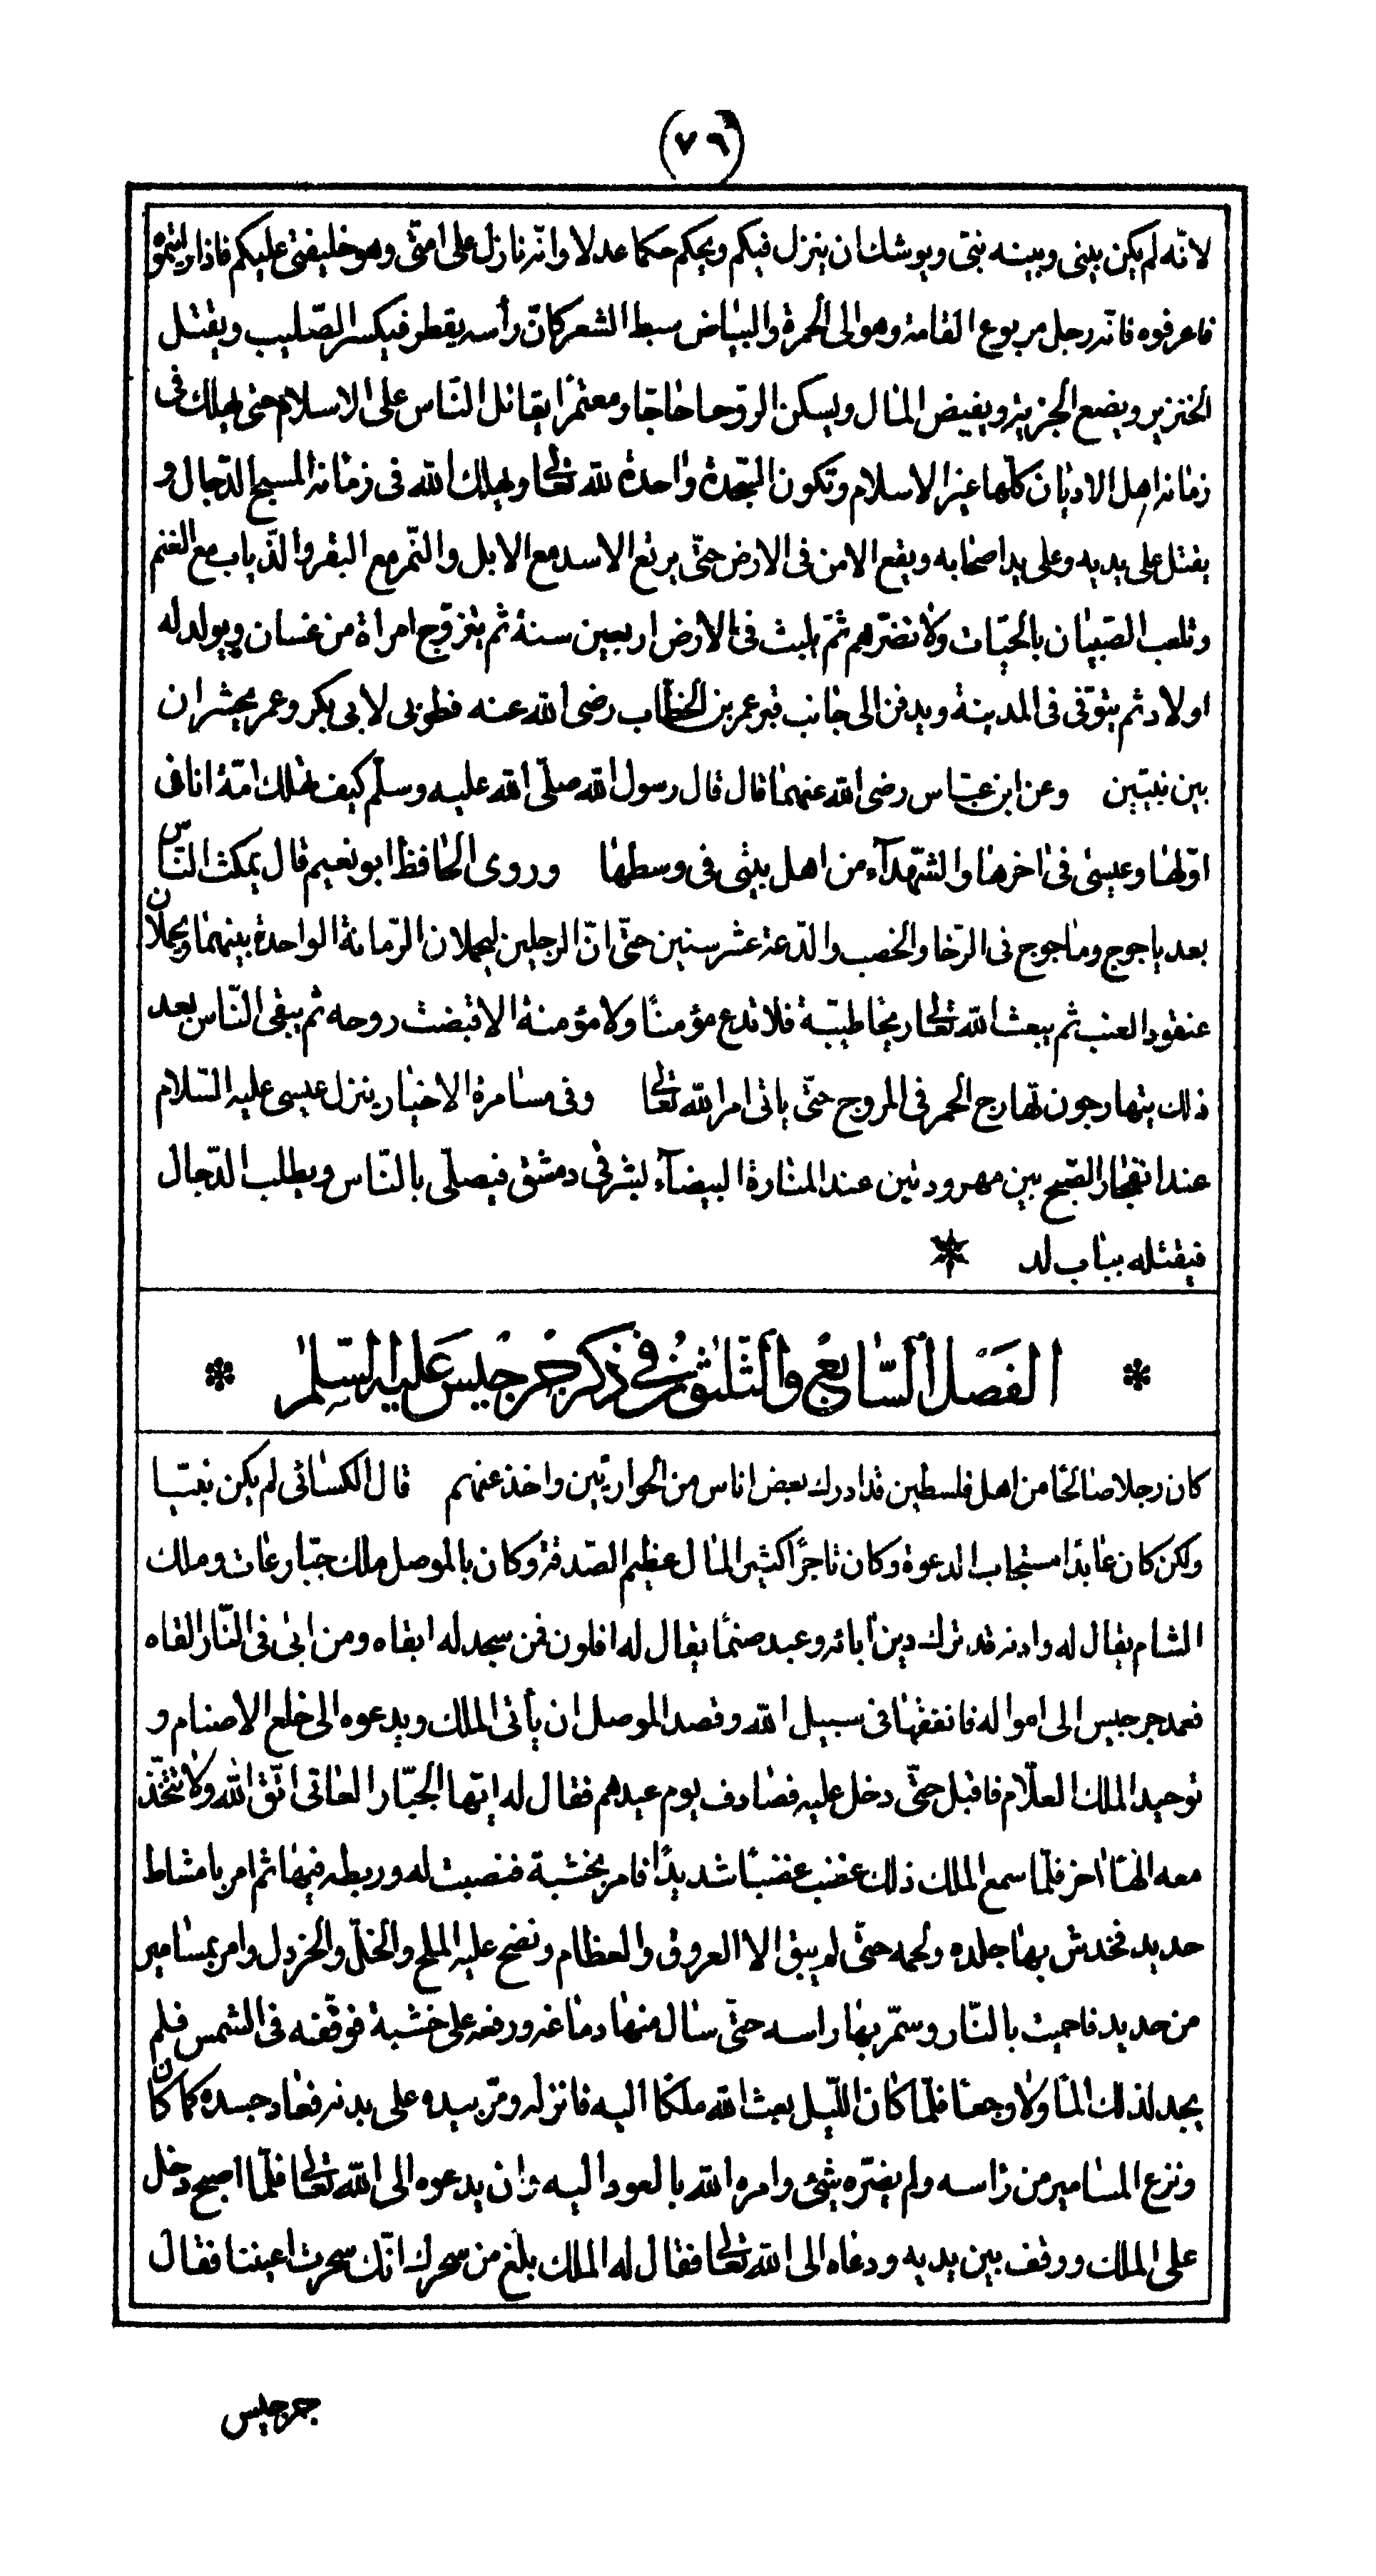 (٧٦)
لانّه لم يكن بينى وبينه نبىّ ويوشك ان ينزل فيكم ويحكم حكما عدلا وانّه نازل على امتى وهو خليفتى عليكم فاذا رايتموه
فاعرفوه فانّه رجل مربوع القامة وهو الى الحمرة والبياض سبط الشعر كانّ رأسه يقطر فيكسر الصّليب ويقتل
الخنزير ويضع الجزية ويفيض المال ويسكن الروحا حاجّا ومعتمرًا يقاتل النّاس على الاسلام حتى يهلك فى
زمانه اهل الاديان كلّها غير الاسلام وتكون السّجدة واحدة لله تعالى ويهلك الله فى زمانه المسيح الدّجال و
يقتل على يديه وعلى يد اصحابه ويقع الامن فى الارض حتّى يرتع الاسد مع الابل والنّمر مع البقر والذّياب مع الغنم
وتلعب الصّبيان بالحيّات ولا تضرّهم ثمّ يلبث فى الارض اربعين سنة ثم يتزوّج امراة من غسان ويولد له
اولاد ثم يتوفّى فى المدينة ويدفن الى جانب قبر عمر بن الخطّاب رضى الله عنه فطوبى لابى بكر وعمر يحشران
بين نبيّين وعن ابن عبّاس رضى الله عنهما قال قال رسول الله صلّى الله عليه وسلّم كيف تهلك امّة انا فى
اوّلها وعيسى فى اخرها والشّهدآء من اهل بيتى فى وسطها وروى الحافظ ابو نعيم قال يمكث النّاس
بعد ياجوج وماجوج فى الرّخا والخصب والدّعة عشر سنين حتّى انّ الرجلين ليحملان الرّمانة الواحدة بينهما ويحملان
عنقود العنب ثم يبعث الله تعالى ريحا طيّبة فلا تدع مؤمنًا ولا مؤمنة الا قبضت روحه ثم يبقى النّاس بعد
ذلك يتهارجون تهارج الحمر فى المروج حتّى ياتى امر الله تعالى وفى مسامرة الاخيار ينزل عيسى عليه السّلام
عند انفجار الصّبح بين مهرودتين عند المنارة البيضآء لشرقى دمشق فيصلّى بالنّاس ويطلب الدّجال
فيقتله بباب لد
الفصل السّابع والثّلثون فى ذكر جرجيس عليه السّلم
كان رجلا صالحًا من اهل فلسطين قد ادرك بعض اناس من الحواريّين واخذ عنهم قال الكسائى لم يكن نبيّا
ولكن كان عابدًا مستجاب الدعوة وكان تاجرًا كثير المال عظيم الصّدقة وكان بالموصل ملك جبّار عات وملك
الشام يقال له وادنه قد ترك دين آبائه وعبد صنمًا يقال له افلون فمن سجد له ابقاه ومن ابى فى النّار القاه
فعمد جرجيس الى امواله فانفقها فى سبيل الله وقصد الموصل ان يأتى الملك ويدعوه الى خلع الاصنام و
توحيد الملك العلّام فاقبل حتّى دخل عليه فصادف يوم عيدهم فقال له ايّها الجبّار العاتى اتّق الله ولا تتخّذ
معه الهًا اخر فلمّا سمع الملك ذلك غضب غضبًا شديدًا فامر بخشبة فنصبت له وربطه فيها ثم امر بامشاط
حديد فخدش بها جلده ولحمه حتّى لم يبق الا العروق والعظام ونضح عليه الملح والخلّ والخردل وامر بمسامير
من حديد فاحميت بالنّار وسمّر بها راسه حتّى سال منها دماغه ورفعه على خشبة فوقّفه فى الشمس فلم
يجد لذلك المًا ولا وجعًا فلمّا كان اللّيل بعث الله ملكا اليه فانزله ومرّ بيده على بدنه فعاد جسده كما كان
ونزع المسامير من رأسه ولم يضرّه شئ وامره الله بالعود اليه وان يدعوه الى الله تعالى فلمّا اصبح دخل
على الملك ووقف بين يديه ودعاه الى الله تعالى فقال له الملك بلغ من سحرك انّك سحرت اعيننا فقال
جرجيس